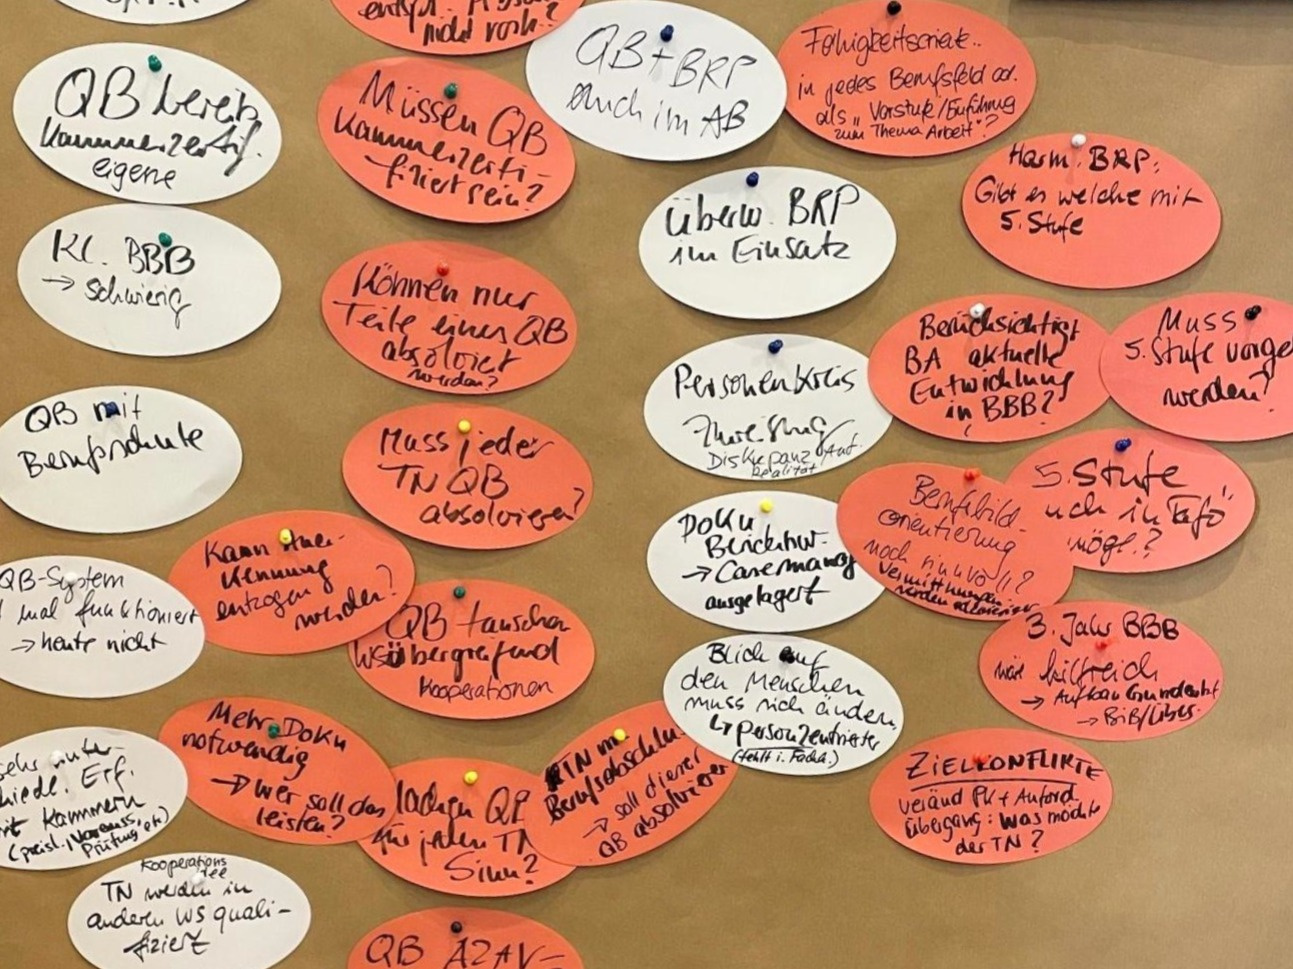 nicht
QB bereits
kammerzertif.
eigene
Kl. BBB
→ schwierig
QB mit
Berufsschule
QB-System
mal funktioniert
→ heute nicht
sehr unter-
schiedl. Erf.
mit Kammern
(preisl., Vorauss.,
Prüfung, etc)
Kooperations
idee
TN werden in
anderen WS quali-
fiziert
Müssen QB
kammerzerti-
fiziert sein?
Können nur
Teile eines QB
absolviert
werden?
Muss jeder
TN QB
absolvieren?
Kann Aner-
kennung
entzogen
werden?
QB tauschen
WSübergreifend
Kooperationen
Mehr Doku
notwendig
→ wer soll das
leisten?
machen QB
für jeden TN
Sinn?
TN m.
Berufsabschluss
→ soll dieser
QB absolvieren
QB AZAV-
QB + BRP
auch im AB
überw. BRP
im Einsatz
Personenkreis
Zuweisung
Diskrepanz Auf.
Realität
Doku
Berichtsw.
→ Casemanag
ausgelagert
Blick auf
den Menschen
muss sich ändern
↳ personzentrierter
(fehlt i. Fachk.)
Fähigkeitsorient..
in jedes Berufsfeld od.
als „Vorstufe/Einführung
zum Thema Arbeit"?
Harm. BRP:
Gibt es welche mit
5. Stufe
Berücksichtigt
BA aktuelle
Entwicklung
in BBB?
Muss
5. Stufe vorge
werden?
Berufsbild-
orientierung
noch sinnvoll?
Vermittlungen
werden
5. Stufe
uch in
mögl.?
3. Jahr BBB
wäre hilfreich
→ Aufbau
→ BiB/Übers.
ZIELKONFLIKTE
veränd PK + Anford.
Übergang: Was möchte
der TN?